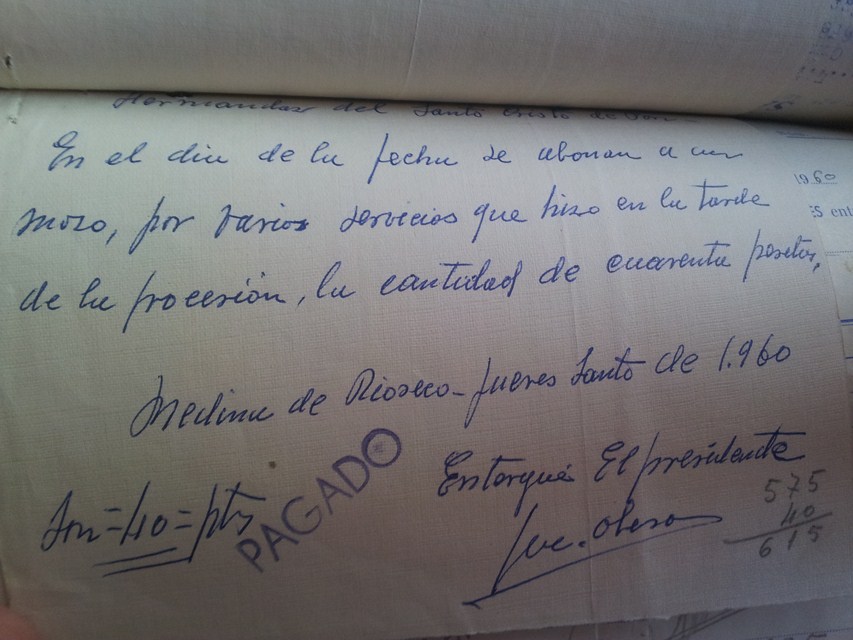 Hermandad del Santo Cristo de
En el dia de la fecha se abonan a un
mozo, por varios servicios que hizo en la tarde
de la procesión, la cantidad de cuarenta pesetas,
Medina de Rioseco - Jueves Santo de 1.960
El presidente
Son = 40 = pts
PAGADO
575
40
615
1960